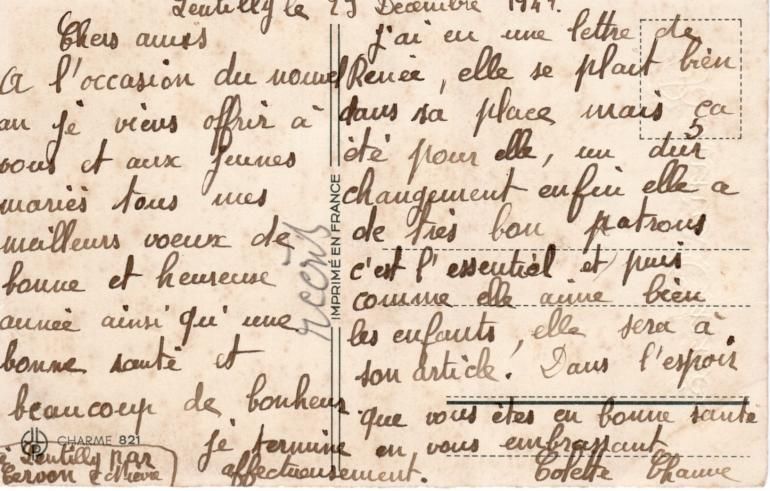 Lentilly le 29 Décembre 1941.
Chers amis
A l'occasion du nouvel
an je viens offrir à
vous et aux jeunes
mariés tous mes
meilleurs voeux de
bonne et heureuse
année ainsi qu'une
bonne santé et
beaucoup de bonheur
je termine
affectueusement.
j'ai eu une lettre de
Renée, elle se plait bien
dans sa place mais ça
été pour elle, un dur
changement enfin elle a
de très bon patrons
c'est l'essentiel et puis
comme elle aime bien
les enfants, elle sera à
son article! Dans l'espoir
que vous êtes en bonne santé
en vous embrassant
Colette Chauve
IMPRIMÉ EN FRANCE
CHARME 821
à Lentilly par